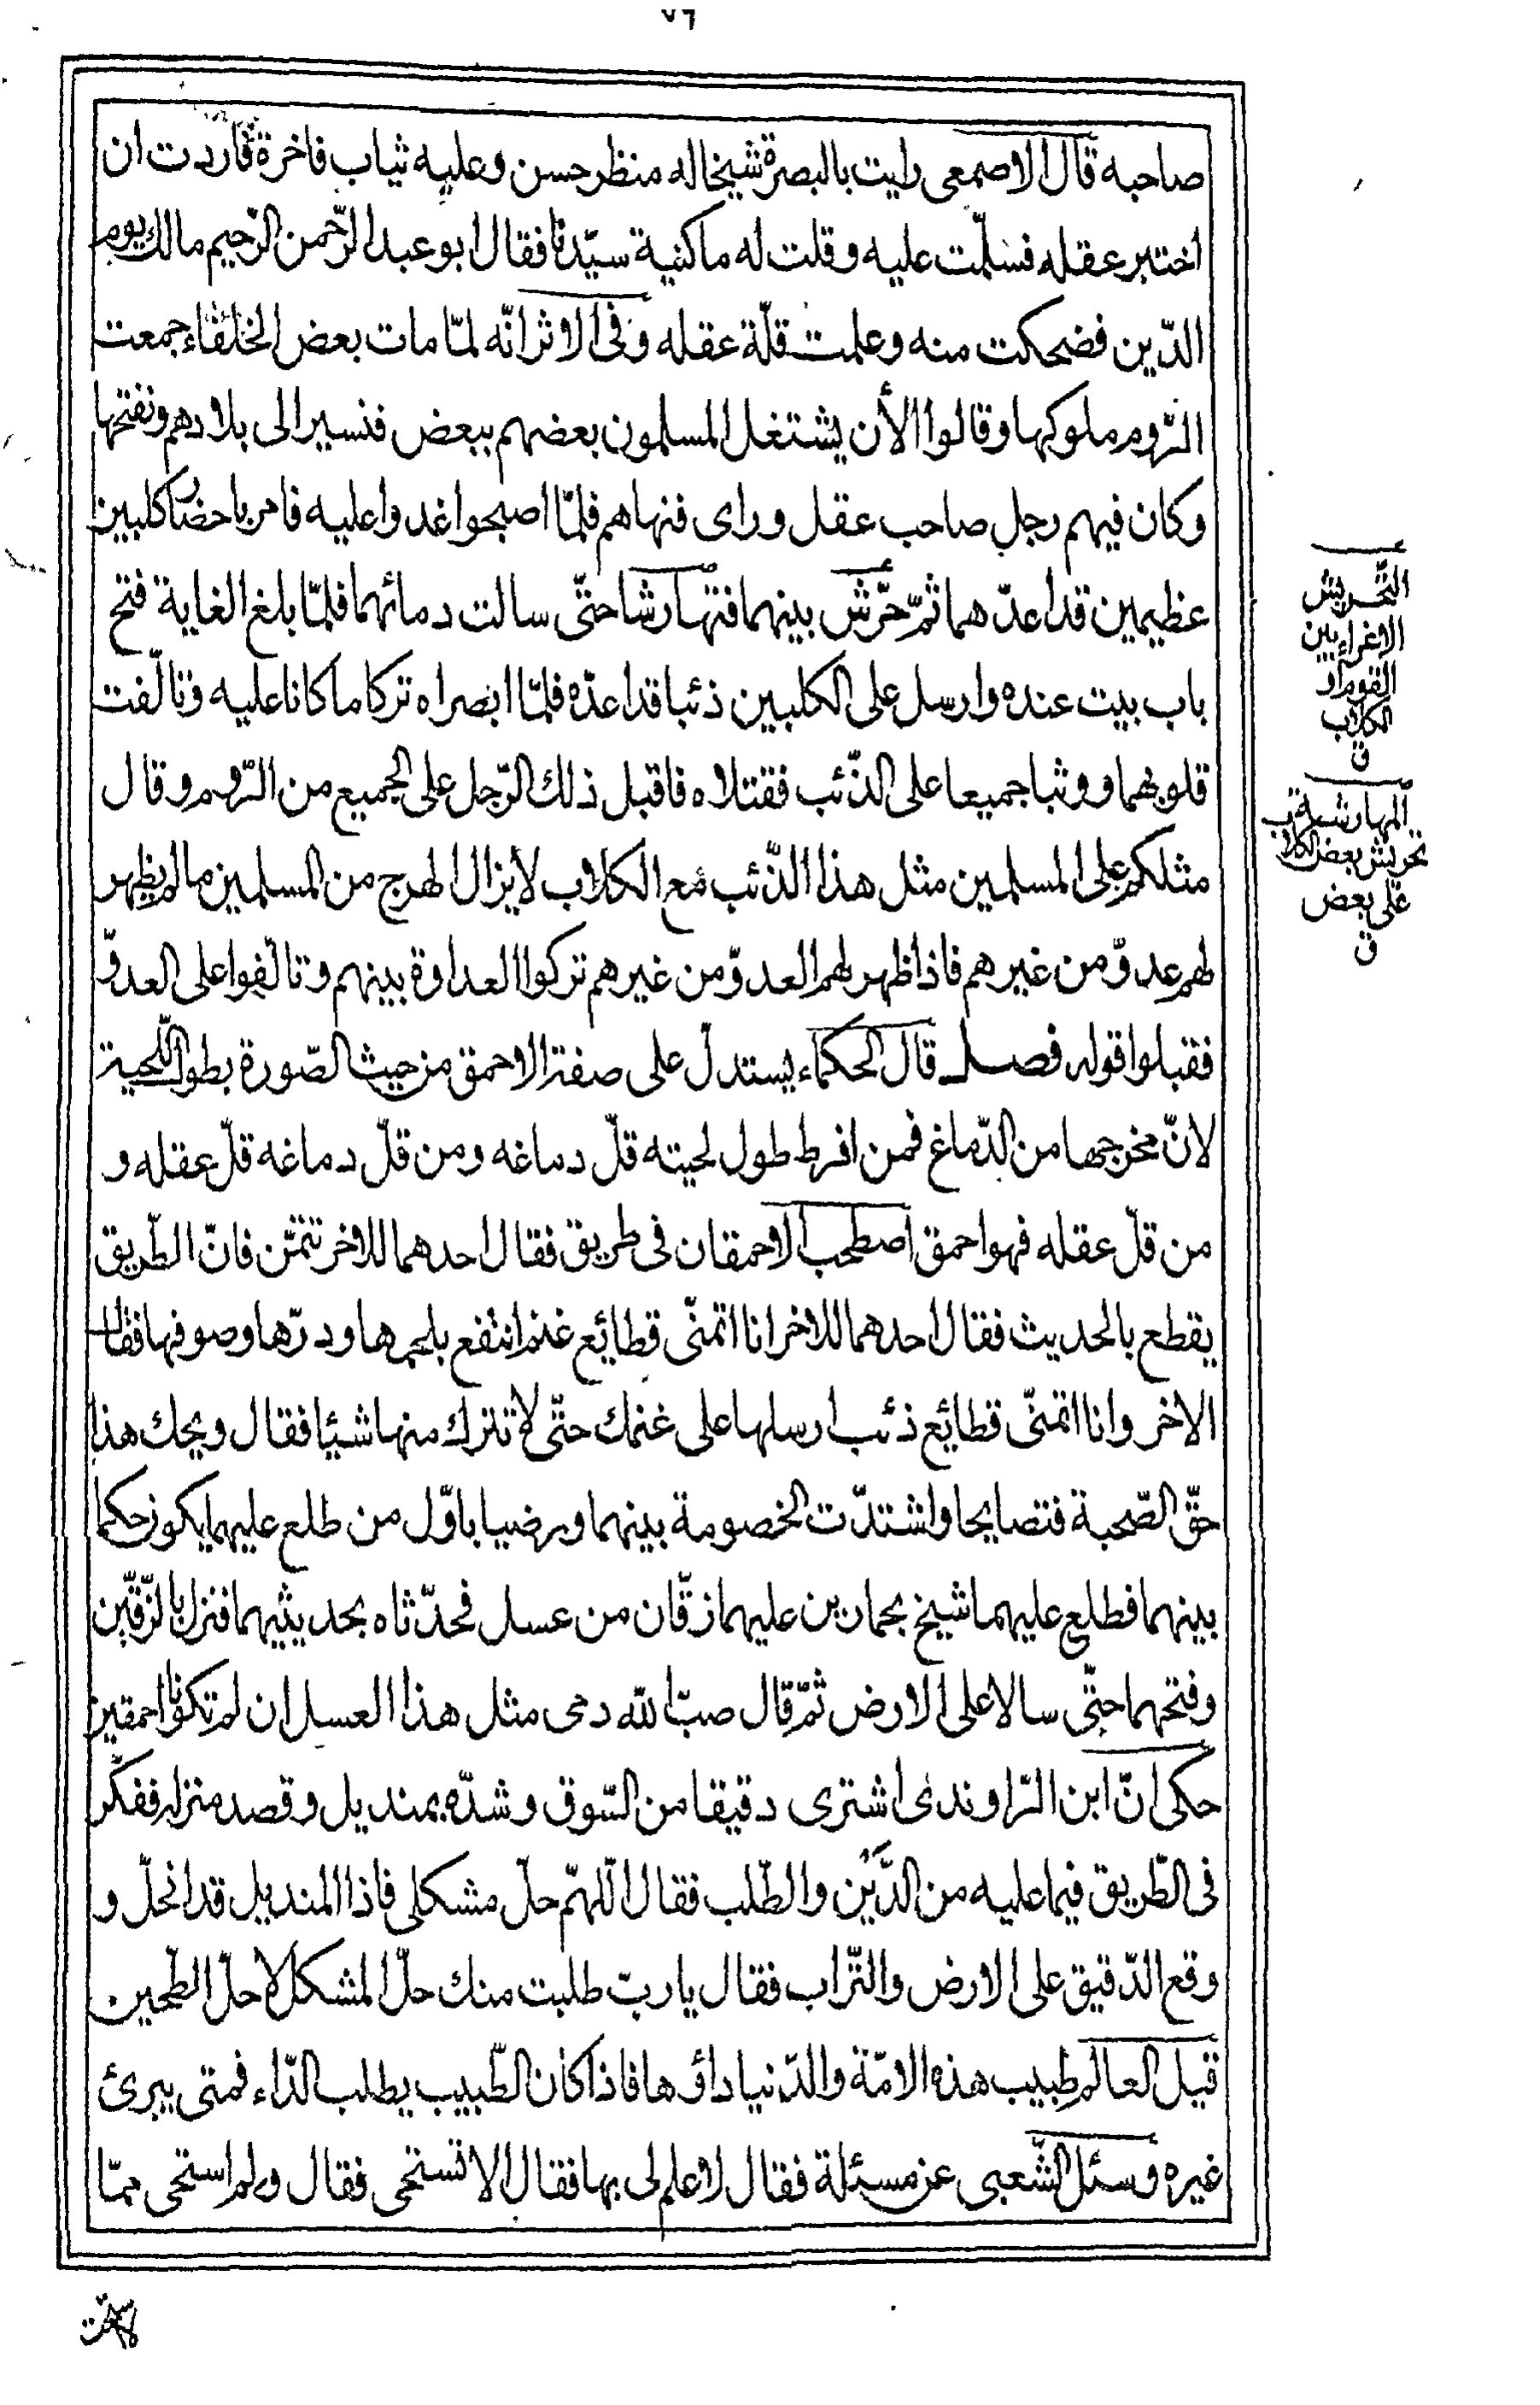 ٧٦
صاحبه قال الاصمعى رايت بالبصرة شيخا له منظر حسن وعليه ثياب فاخرة فاردت ان
اختبر عقله فسلّمت عليه وقلت له ما كنية سيّدنا فقال ابو عبد الرّحمن الرّحيم مالك يوم
الدّين فضحكت منه وعلمت قلّة عقله وفى الاثر انّه لمّا مات بعض الخلفاء جمعت
الرّوم ملوكها وقالوا الأن يشتغل المسلمون بعضهم ببعض فنسير الى بلادهم ونفتحها
وكان فيهم رجل صاحب عقل وراى فنهاهم فلمّا اصبحوا غدوا عليه فامر باحضار كلبين
عظيمين قد اعدّهما ثمّ حرّش بينهما فتهارشا حتّى سالت دمائهما فلمّا بلغ الغاية فتح
باب بيت عنده وارسل على الكلبين ذئبا قد اعدّه فلمّا ابصراه تركا ما كانا عليه وتالّفت
قلوبهما ووثبا جميعا على الذّئب فقتلاه فاقبل ذلك الرّجل على الجميع من الرّوم وقال
مثلكم على المسلمين مثل هذا الذّئب مع الكلاب لايزال الهرج من المسلمين ما لم يظهر
لهم عدوّ من غيرهم فاذا ظهر لهم العدوّ من غيرهم تركوا العداوة بينهم وتالّفوا على العدوّ
فقبلوا قوله فصل قال الحكماء يستدلّ على صفة الاحمق من حيث الصّورة بطول اللّحية
لانّ مخرجها من الدّماغ فمن افرط طول لحيته قلّ دماغه ومن قلّ دماغه قلّ عقله و
من قلّ عقله فهو احمق اصطحب الاحمقان فى طريق فقال احدهما للاخر تتمنّ فانّ الطّريق
يقطع بالحديث فقال احدهما للاخر انا اتمنّى قطائع غنم انتفع بلحمها ودرّها وصوفها فقال
الاخر وانا اتمنّى قطائع ذئب ارسلها على غنمك حتّى لا تترك منها شيئا فقال ويحك هذا
حقّ الصّحبة فتصايحا واشتدّت الخصومة بينهما ورضيا باوّل من طلع عليهما يكون حكما
بينهما فطلع عليهما شيخ بحمارين عليهما زقّان من عسل فحدّثاه بحديثيهما فنزل بالزّقّين
وفتحهما حتّى سالا على الارض ثمّ قال صبّ الله دمى مثل هذا العسل ان لم تكونا احمقين
حكى انّ ابن الرّاوندى اشترى دقيقا من السّوق وشدّه بمنديل وقصد منزله ففكّر
فى الطّريق فيما عليه من الدَّيْن والطّلب فقال اللّهمّ حلّ مشكلى فاذا المنديل قد انحلّ و
وقع الدّقيق على الارض والتّراب فقال يا ربّ طلبت منك حلّ المشكل لا حلّ الطّحين
قيل العالم طبيب هذه الامّة والدّنيا داؤها فاذا كان الطّبيب يطلب الدّاء فمتى يبرئ
غيره وسئل الشّعبى عن مسئلة فقال لا علم لى بها فقال الا تستحى فقال ولم استحى ممّا
التّحريش
الاغراء بين
القوم او
الكلاب
ق
المهارشة
تحريش بعض الكلاب
على بعض
ق